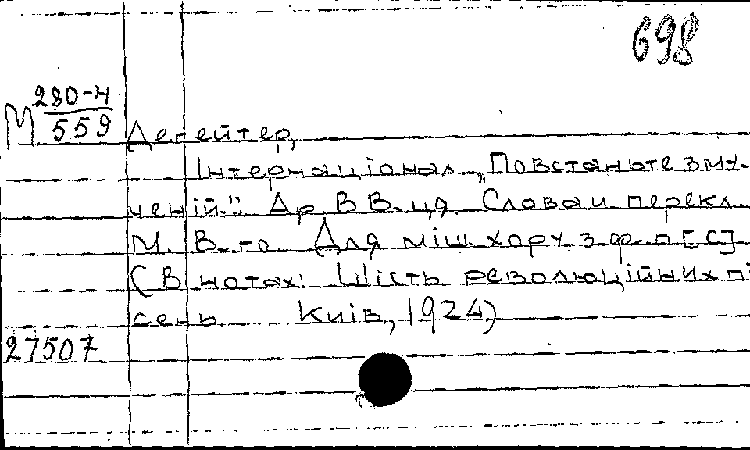 698
М 280-Н
559
Дегейтер,
Інтернаціонал „Повстаньте зму-
чений". Др. В В-ця Слова и перекл
М. В-го Для міш хору з ф-п [С]
(В нотах: Шість революційних пі
сень Київ, 1924)
27507